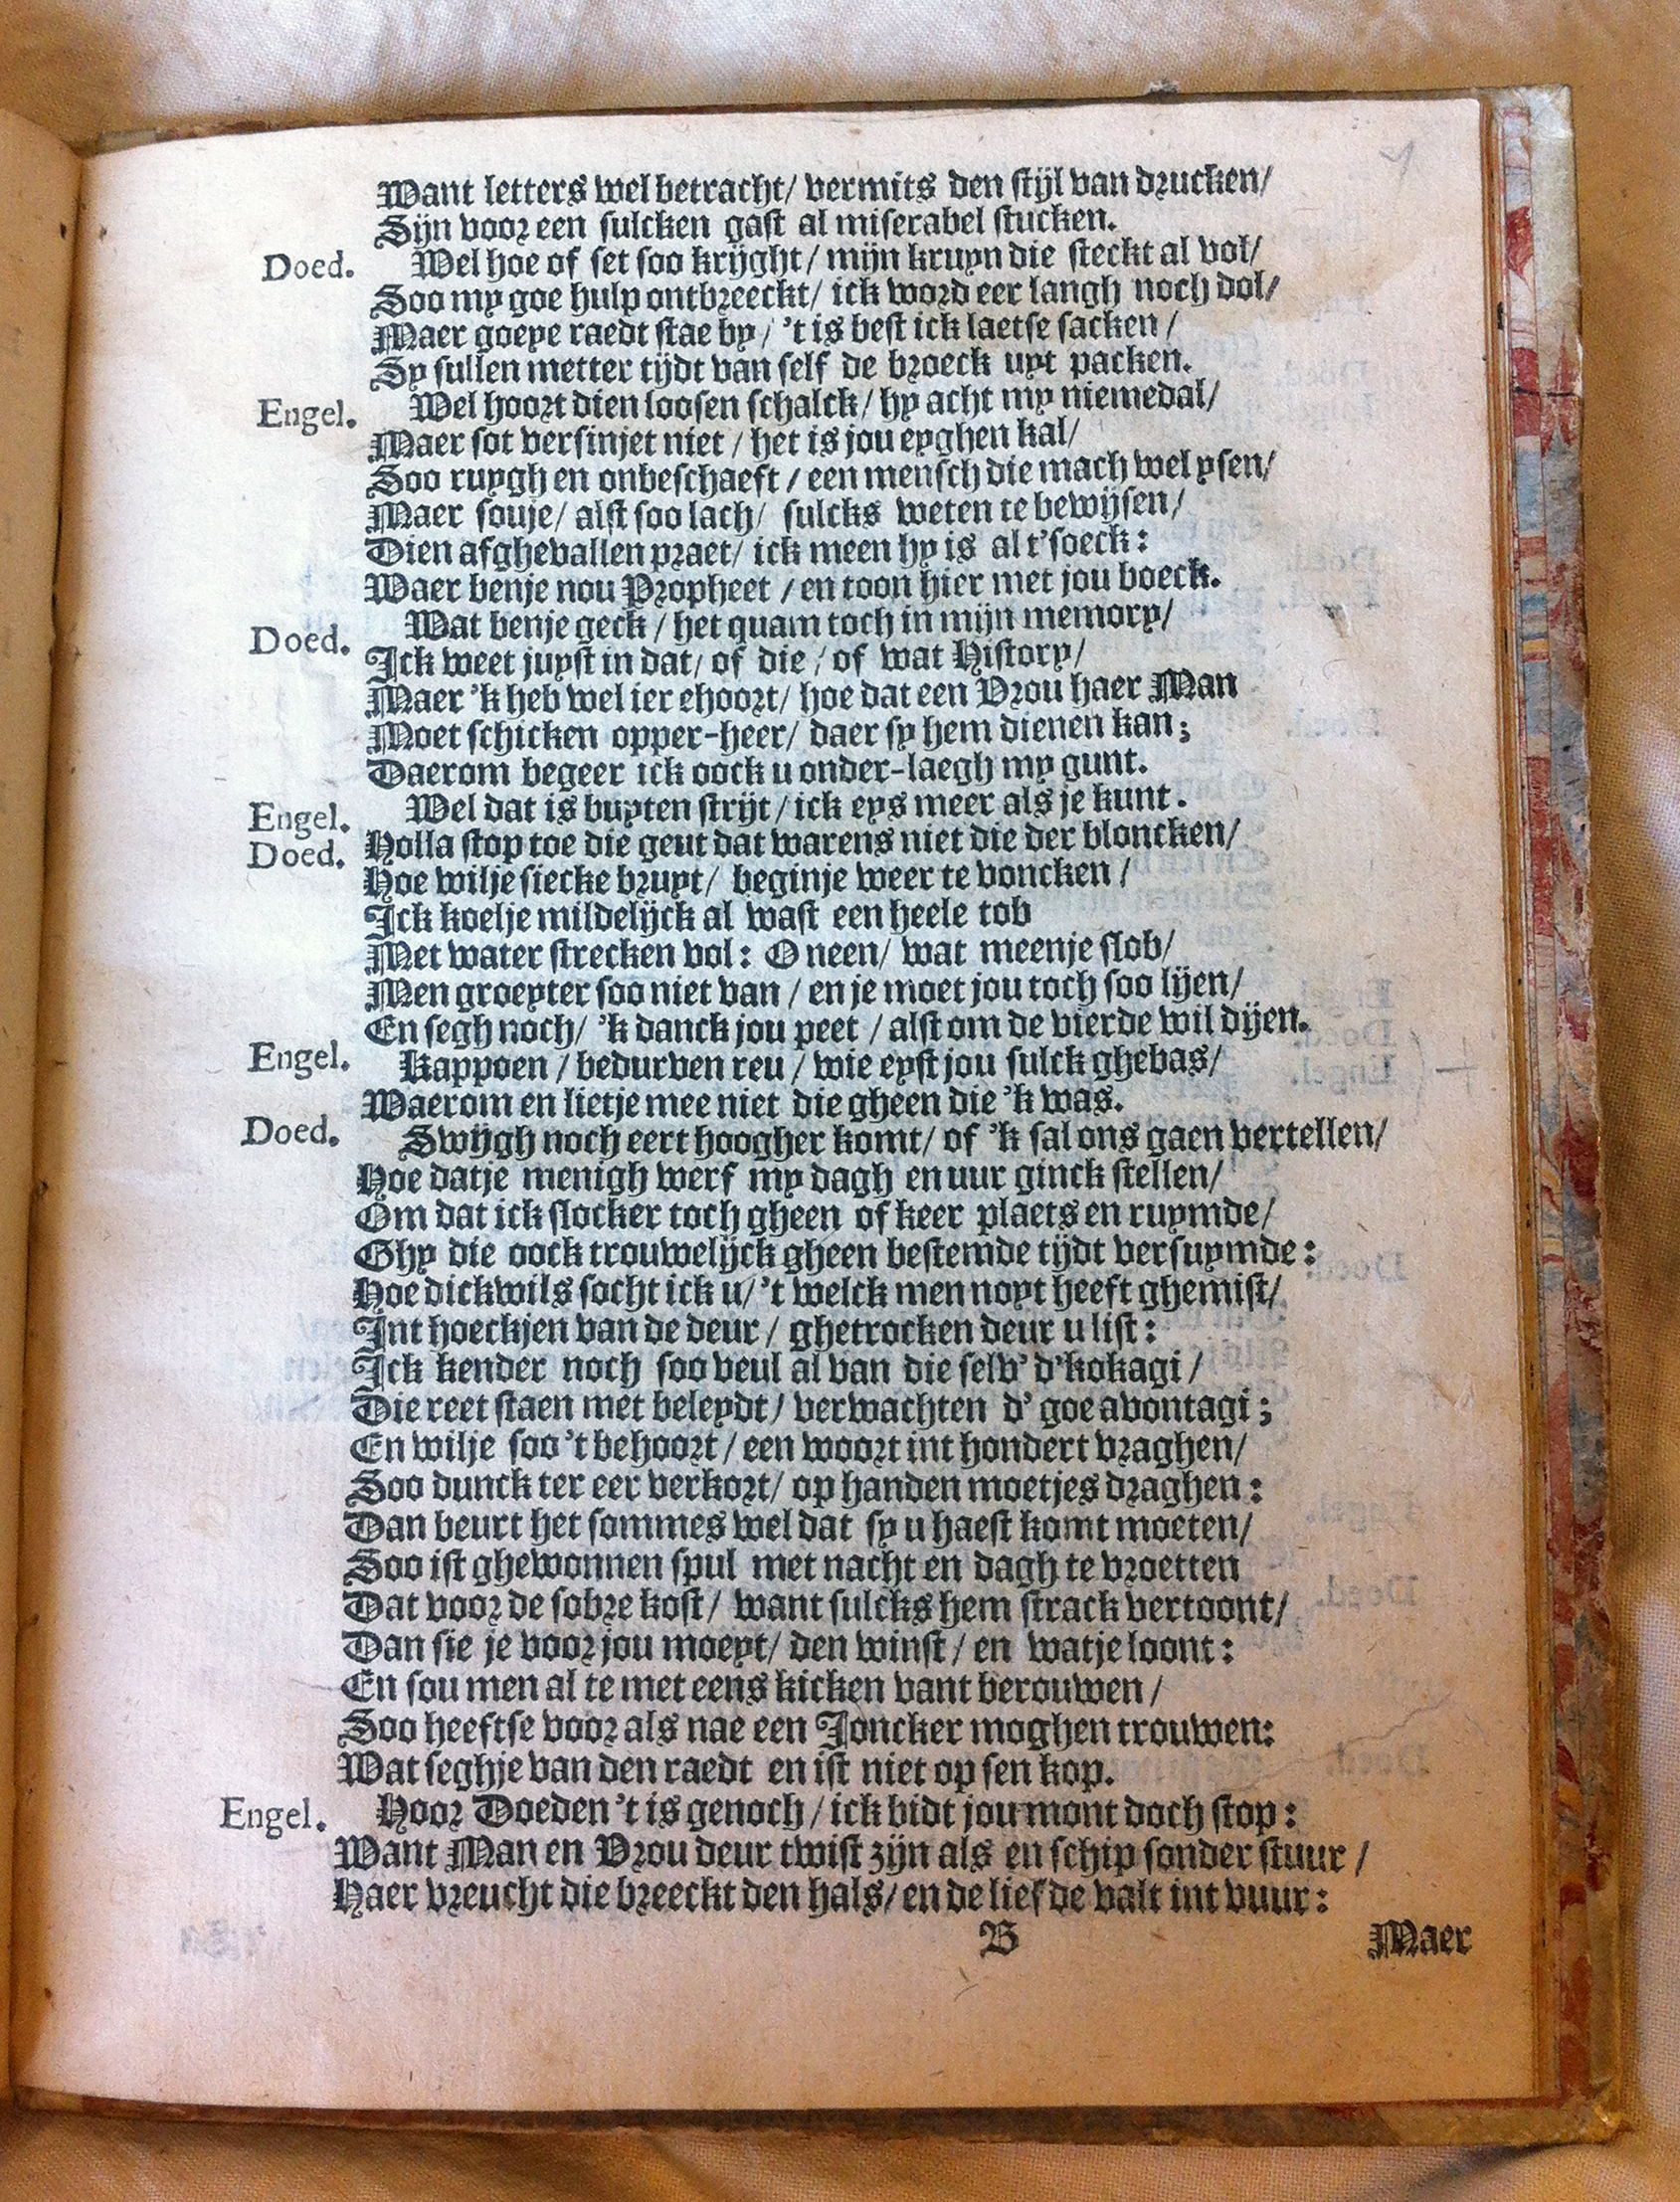 Want letters wel betracht/ vermits den stijl van drucken/
Sijn voor een sulcken gast al miserabel stucken.
Doed. Wel hoe of set soo krijght/ mijn kruyn die steckt al vol/
Soo my goe hulp ontbreeckt/ ick word eer langh noch dol/
Maer goeye raedt stae by/ 't is best ick laetse sacken/
Sy sullen metter tijdt van self de broeck uyt packen.
Engel. Wel hoort dien loosen schalck/ hy acht my niemedal/
Maer sot versinjet niet/ het is jou eyghen kal/
Soo ruygh en onbeschaeft/ een mensch die mach wel ysen/
Maer souje/ alst soo lach/ sulcks weten te bewijsen/
Dien afghevallen praet/ ick meen hy is al t'soeck:
Waer benje nou Propheet/ en toon hier met jou boeck.
Doed. Wat benje geck/ het quam toch in mijn memory/
Ick weet juyst in dat/ of die/ of wat History/
Maer 'k heb wel ier ehoort/ hoe dat een Vrou haer Man
Moet schicken opper-heer/ daer sy hem dienen kan;
Daerom begeer ick oock u onder-laegh my gunt.
Engel. Wel dat is buyten strijt/ ick eys meer als je kunt.
Doed. Holla stop toe die geut dat warens niet die der bloncken/
Hoe wilje siecke bruyt/ beginje weer te voncken/
Ick koelje mildelijck al wast een heele tob
Met water strecken vol: O neen/ wat meenje slob/
Men groeyter soo niet van/ en je moet jou toch soo lijen/
En segh noch/ 'k danck jou peet/ alst om de vierde wil dijen.
Engel. Kappoen/ bedurven reu/ wie eyst jou sulck ghebas/
Waerom en lietje mee niet die gheen die 'k was.
Doed. Swijgh noch eert hoogher komt/ of 'k sal ons gaen vertellen/
Hoe datje menigh werf my dagh en uur ginck stellen/
Om dat ick slocker toch gheen of keer plaets en ruymde/
Ghy die oock trouwelijck gheen bestemde tijdt versuymde:
Hoe dickwils socht ick u/ 't welck men noyt heeft ghemist/
Int hoeckjen van de deur/ ghetrocken deur u list:
Ick kender noch soo veul al van die selv' d'kokagi/
Die reet staen met beleydt/ verwachten d' goe avontagi;
En wilje soo 't behoort/ een woort int hondert vraghen/
Soo dunck ter eer verkort/ op handen moetjes draghen:
Dan beurt het sommes wel dat sy u haest komt moeten/
Soo ist ghewonnen spul met nacht en dagh te vroetten
Dat voor de sobre kost/ want sulcks hem strack vertoont/
Dan sie je voor jou moeyt/ den winst/ en watje loont:
En sou men al te met eens kicken vant berouwen/
Soo heeftse voor als nae een Joncker moghen trouwen:
Wat seghje van den raedt en ist niet op sen kop.
Engel. Hoor Doeden 't is genoch/ ick bidt jou mont doch stop:
Want Man en Vrou deur twist zijn als en schip sonder stuur/
Haer vreucht die breeckt den hals/ en de liefde valt int vuur:
B Maer